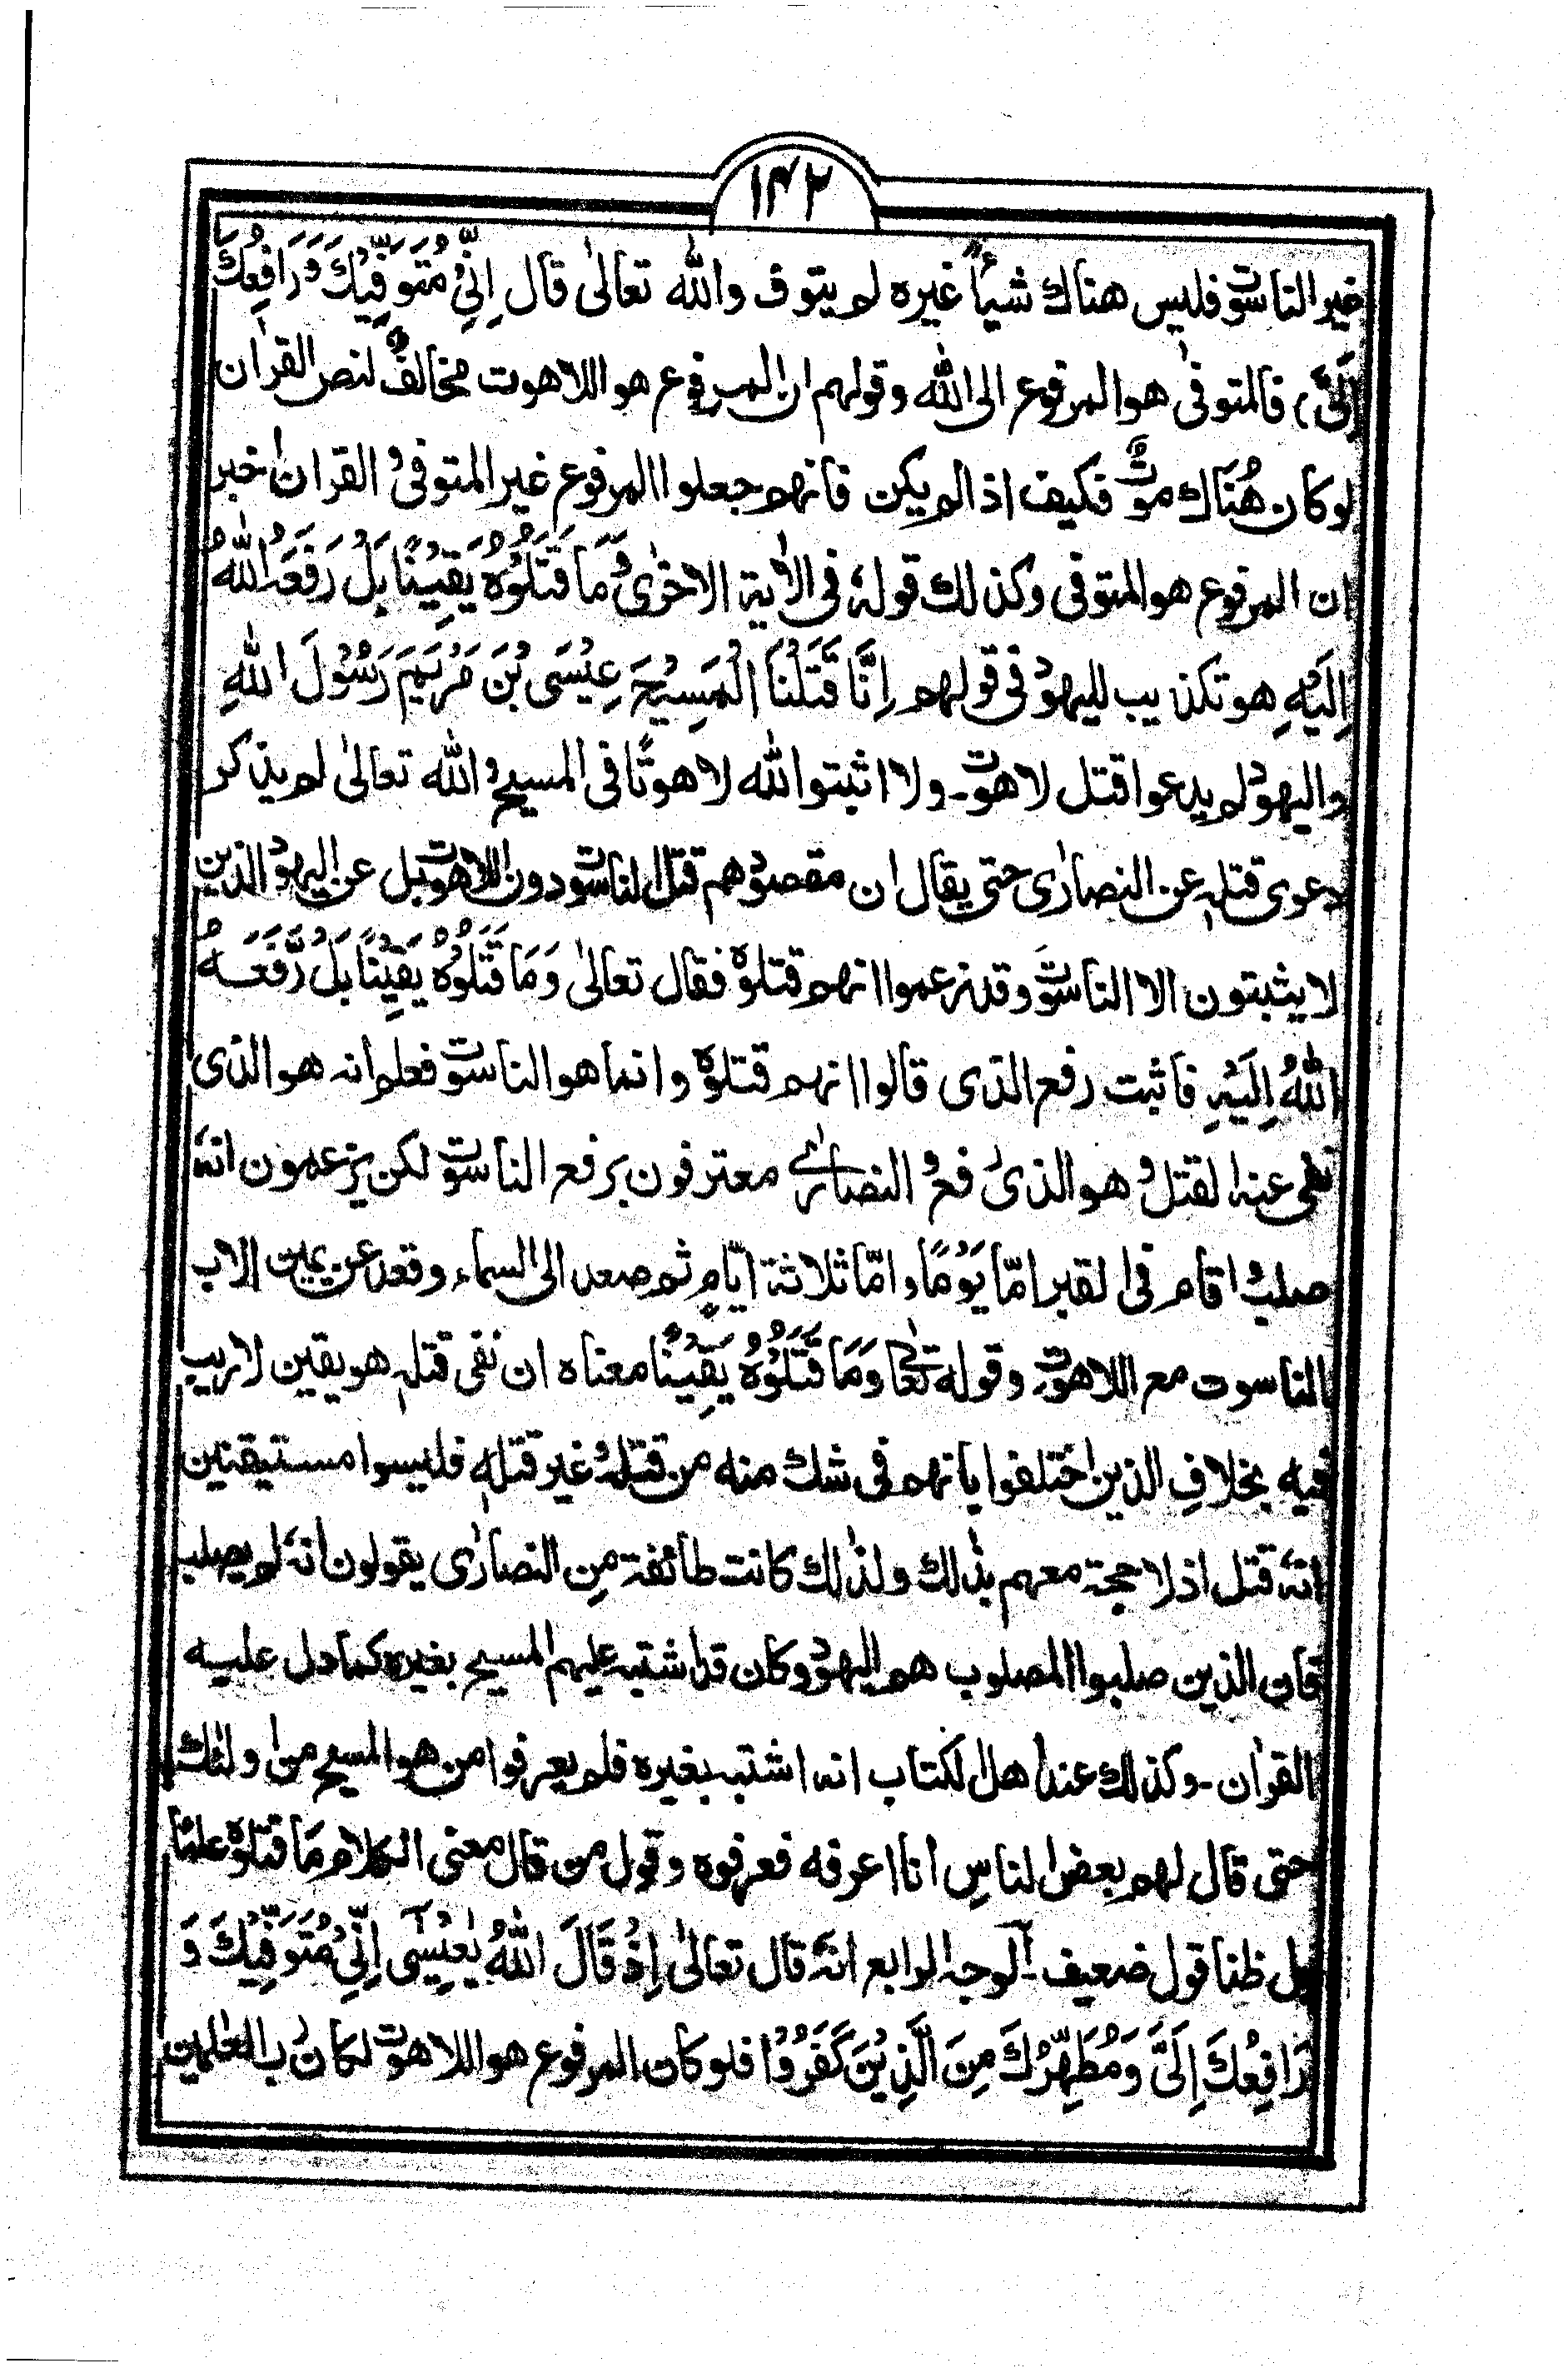 ١٤٢
غير الناسوت فليس هناك شيأً غيره لم يتوف والله تعالىٰ قال اِنِّىْ مُتَوَفِّيْكَ وَرَافِعُكَ
اِلَىَّ) فالمتوفىٰ هو المرفوع الى الله وقولهم ان المرفوع هو اللاهوت مخالفٌ لنص القراٰن
لوكان هُنَاك موتٌ فكيف اذا لم يكن فانهم جعلوا المرفوع غير المتوفى و القراٰن اخبر
ان المرفوع هو المتوفى وكذلك قولهٗ فى الاٰية الاخرٰى وَمَا قَتَلُوْهُ يَقِيْنًا بَلْ رَفَعَهُ اللّٰهُ
اِلَيْهِ هو تكذيب لليهود فى قولهم اِنَّا قَتَلْنَا الْمَسِيْحَ عِيْسَى بْنَ مَرْيَمَ رَسُوْلَ اللّٰهِ
واليهود لم يدعوا قتل لاهوت۔ ولا اثبتوا لله لاهوتًا فى المسيح و الله تعالىٰ لم يذكر
دعوى قتله عن النصارٰى حتى يقال ان مقصودهم قتل الناسوت دون اللاهوت بل عن اليهود الذين
لا يثبتون الا الناسوت وقد زعموا انهم قتلوهُ فقال تعالىٰ وَمَا قَتَلُوْهُ يَقِيْنًا بَلْ رَّفَعَـهُ
اللّٰهُ اِلَيْهِ فاثبت رفع الذى قالوا انهم قتلوهُ وانما هو الناسوت فعلم انه هو الذى
نفى عنه القتل و هو الذى رفع و النصارٰے معترفون برفع الناسوت لكن يزعمون انهٗ
صلب و اقام فى القبر امّا يَوْمًا وامّا ثلاثة ايّامٍ ثم صعد الى السماء وقعد عن يمين الاب
الناسوت مع اللاهوت وقوله تعٰا وَمَا قَتَلُوْهُ يَقِيْنًا معناه ان نفى قتله هو يقين لا ريب
فيه بخلافِ الذين اختلفوا بانهم فى شك منه من قتلهٖ و غير قتلهٖ فليسوا مستيقنين
انهٗ قتل اذ لا حجة معهم بذٰلك ولذٰلك كانت طائفة مِن النصارٰى يقولون انهٗ لم يصلب
فان الذين صلبوا المصلوب هم اليهود وكان قد اشتبه عليهم المسيح بغيره كما دل عليه
القراٰن۔ وكذلك عند اهل الكتاب انه اشتبه بغيره فلم يعرفوا من هو المسيح من اولئك
حتى قال لهم بعض الناسِ انا اعرفه فعرفوه وقول من قال معنى الكلام مَا قتلوهُ علمًا
بل ظنا قول ضعيف۔ اَلوجه الرابع انهٗ قال تعالىٰ اِذْ قَالَ اللّٰهُ يٰعِيْسٰٓى اِنِّىْ مُتَوَفِّيْكَ وَ
رَافِعُكَ اِلَىَّ وَمُطَهِّرُكَ مِنَ الَّذِيْنَ كَفَرُوْا فلوكان المرفوع هو اللاهوت لكان رب العٰلمين